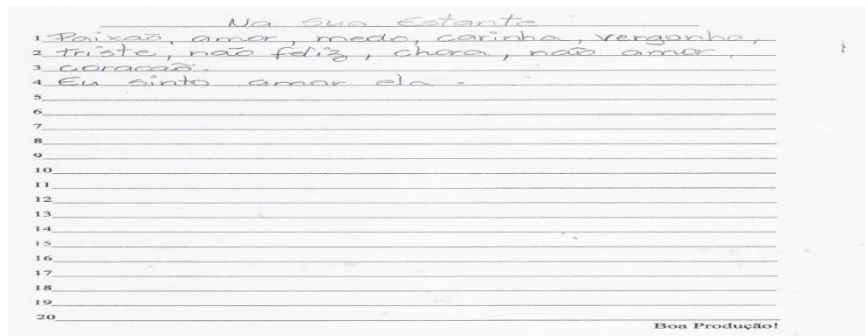 Na Sua Estante
1 Paixaõ, amor, medo, carinho, vergonha,
2 triste, naõ feliz, chora, naõ amor,
3 coracaõ.
4 Eu sinto amor ela.
5
6
7
8
9
10
11
12
13
14
15
16
17
18
19
20
Boa Produção!